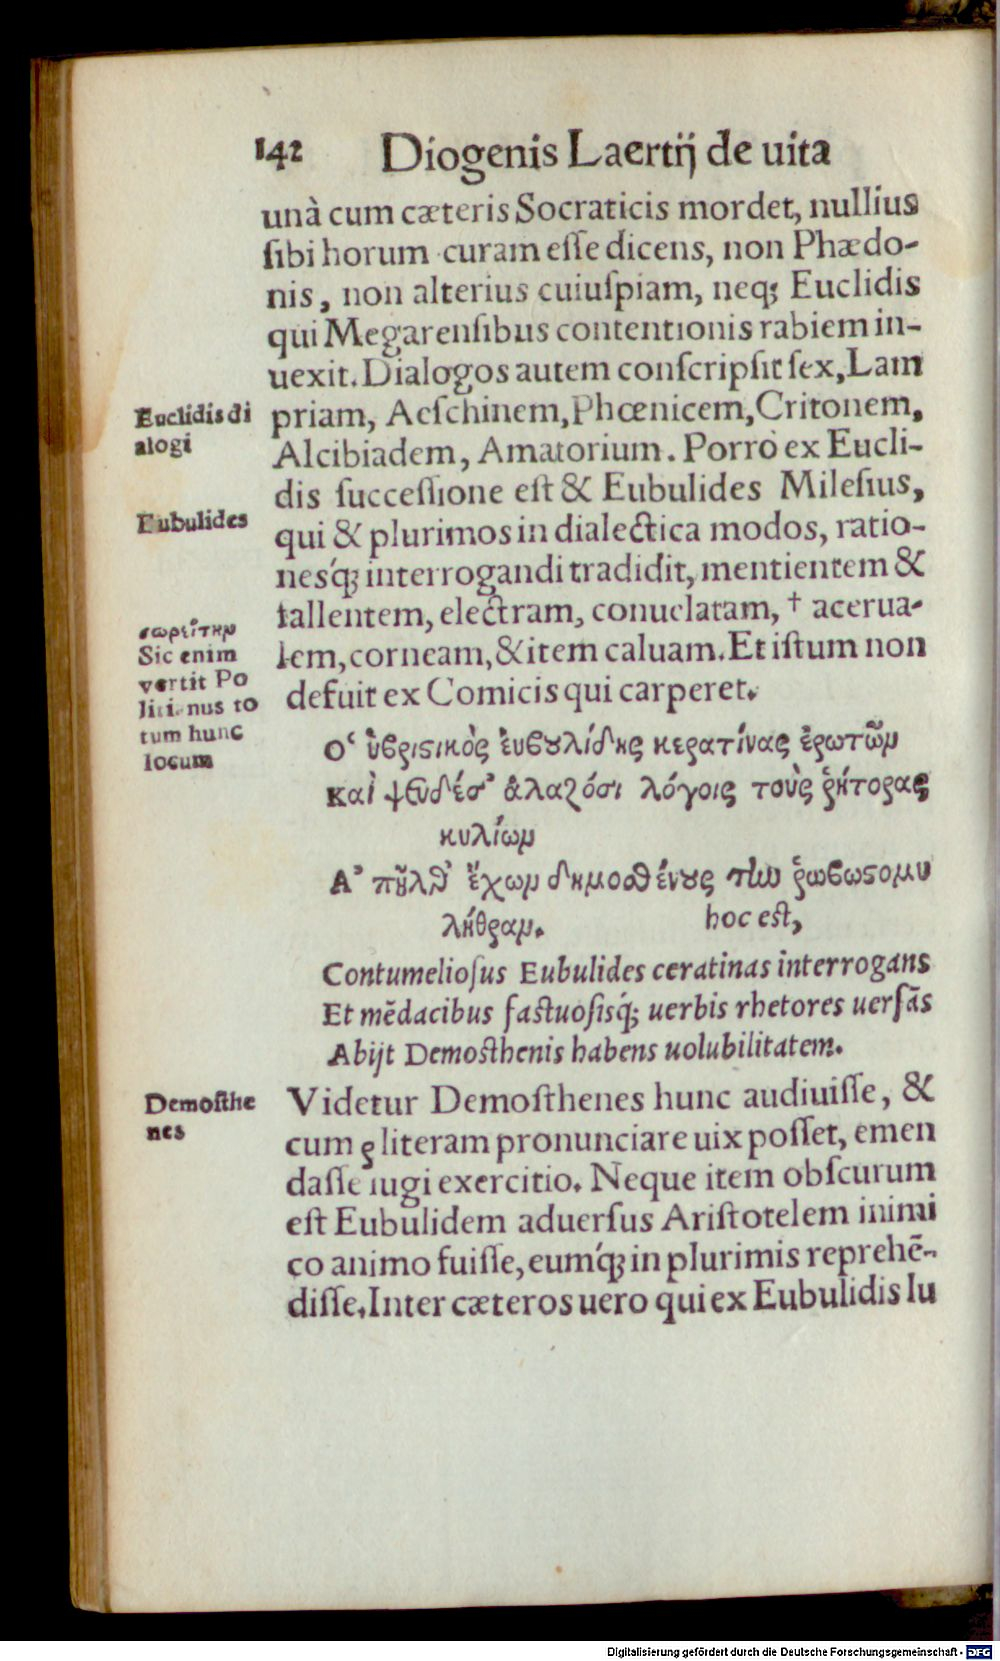 142 Diogenis Laertij de uita
unà cum cæteris Socraticis mordet, nullius
ſibi horum curam eſſe dicens, non Phædo-
nis, non alterius cuiuſpiam, neqꝫ Euclidis
qui Megarenſibus contentionis rabiem in-
uexit. Dialogos autem conſcripſit ſex, Lam
Euclidis di
alogi
priam, Aeſchinem, Phœnicem, Critonem,
Alcibiadem, Amatorium. Porrò ex Eucli-
dis ſucceſſione eſt & Eubulides Mileſius,
Eubulides
qui & plurimos in dialectica modos, ratio-
nesq́ꝫ interrogandi tradidit, mentientem &
fallentem, electram, conuelatam, † acerua-
σωρείτην
Sic enim
vertit Po
litianus to
tum hunc
locum
lem, corneam, & item caluam. Et iſtum non
defuit ex Comicis qui carperet.
Οʽ ὑβριϛικὸς ἐυβουλίδης κερατίνας ἐρωτῶν
Καὶ ψευδέσʼ ἀλαζόσι λόγοις τοὺς ῥήτορας
κυλίων
Αʼ πῆλθʼ ἔχων δημοσθένους τὴν ῥωβωϛομυ
λήθραν.
hoc est,
Contumelioſus Eubulides ceratinas interrogans
Et mēdacibus faſtuoſisq́ꝫ uerbis rhetores uerſās
Abijt Demoſthenis habens uolubilitatem.
Demoſthe
nes
Videtur Demoſthenes hunc audiuiſſe, &
cum ρ literam pronunciare uix poſſet, emen
daſſe iugi exercitio. Neque item obſcurum
eſt Eubulidem aduerſus Ariſtotelem inimi
co animo fuiſſe, eumq́ꝫ in plurimis reprehē-
diſſe. Inter cæteros uero qui ex Eubulidis lu
Digitalisierung gefördert durch die Deutsche Forschungsgemeinschaft - DFG